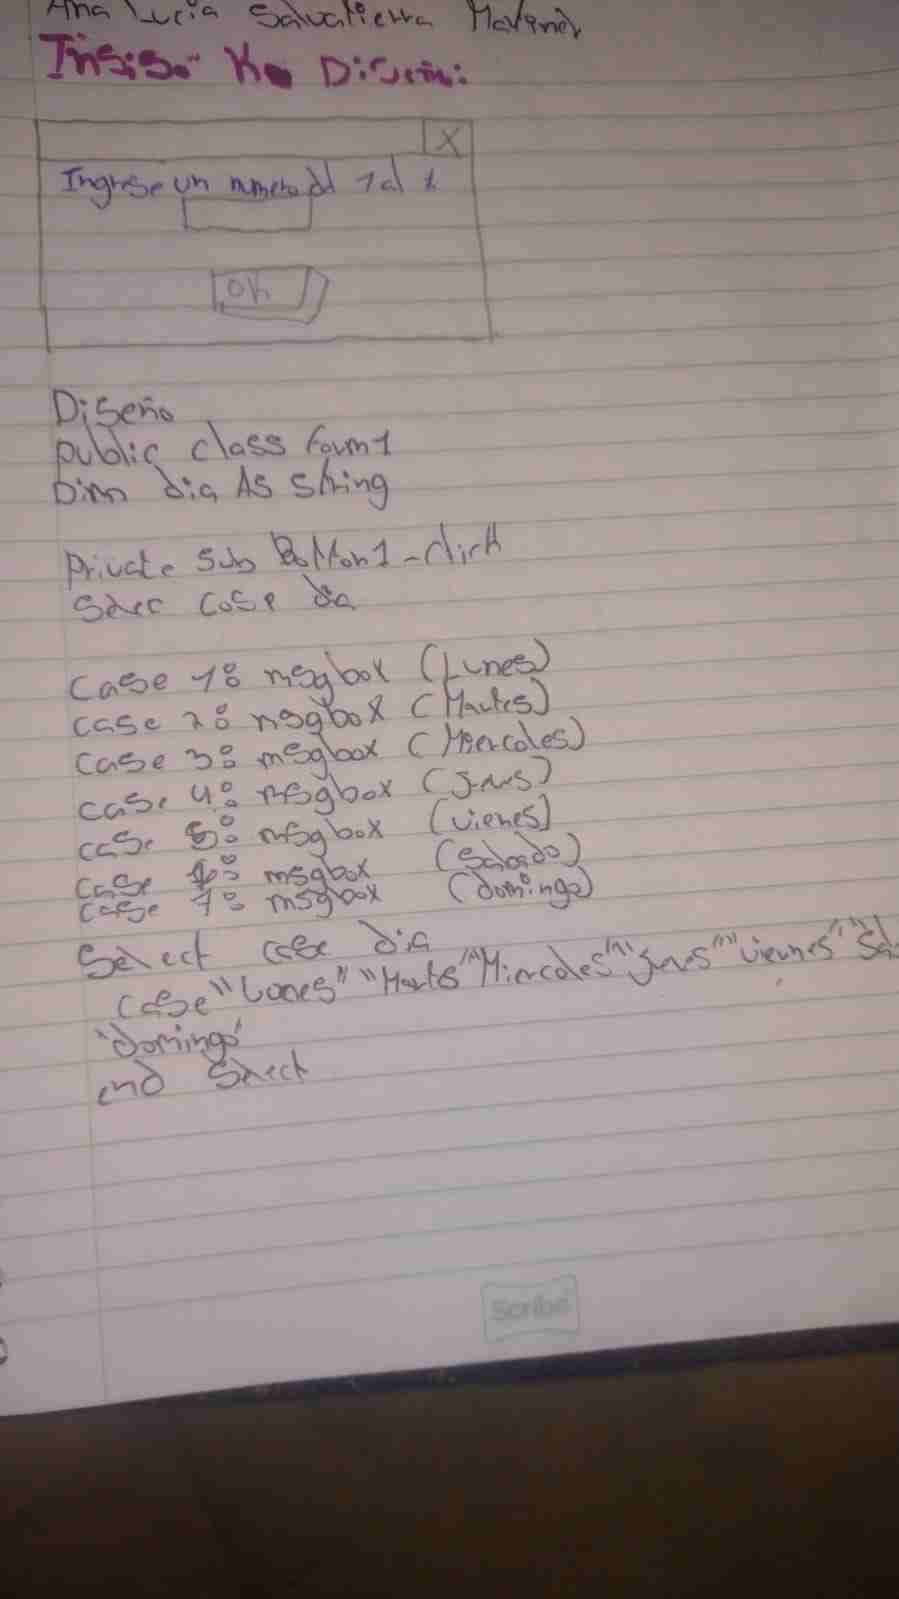 Ana Lucia Salvatierra
Insiso K Diseño:
X
Ingrese un numero del 1 al
OK
Diseño
public class Form1
Dim dia As string
Private Sub Botton1-click
Selec case dia
case 1: msgbox (Lunes)
case 2: msgbox (Martes)
case 3: msgbox (Miercoles)
case 4: msgbox (Jueves)
case 5: msgbox (vienes)
case 6: msgbox (Sabado)
case 7: msgbox (domingo)
Select case dia
case "Lunes" "Martes" "Miercoles" "jueves" "viernes"
"domingo"
end Select
Scribe